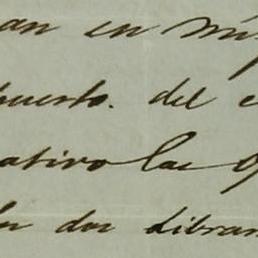 an en mi
puesto. del e
ativo las 9
dos libran